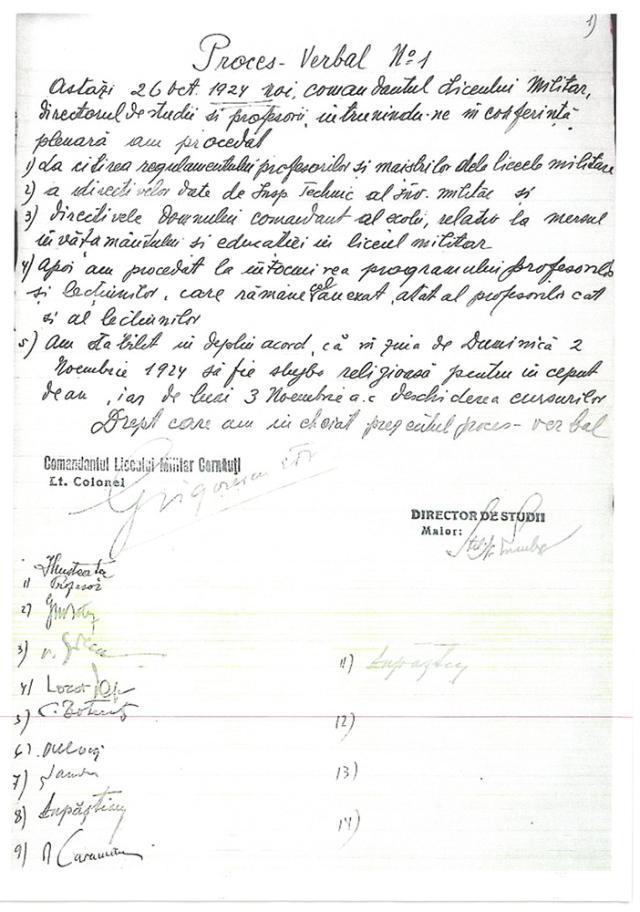 1)
Proces-Verbal No 1
Astăzi 26 oct. 1924 noi, comandantul Liceului Militar,
directorul de studii si profesorii, intrunindu-ne in conferință
plenară am procedat
1) La citirea regulamentului profesorilor si maistrilor dela liceele militare
2) a directivelor date de Insp. Technic al Inv. militar si
3) directivele domnului comandant al scolii, relativ la mersul
învățamântului si educatiei in liceul militar
4) Apoi am procedat la întocmirea programului profesorilor
și lecțiunilor, care rămâne cel anexat, atat al profesorilor cat
si al lectiunilor
5) Am stabilit in deplin acord, că in ziua de Duminică 2
Noembrie 1924 să fie slujba religioasă pentru inceput
de an, iar de luni 3 Noembrie a.c deschiderea cursurilor
Drept care am incheiat prezentul proces-verbal
Comandantul Liceului Militar Cernăuți
Lt. Colonel
Grigorescu
DIRECTOR DE STUDII
Maior:
1) Profesor
2)
3)
4) Lozor
5) C.
6)
7)
8)
9)
11)
12)
13)
14)